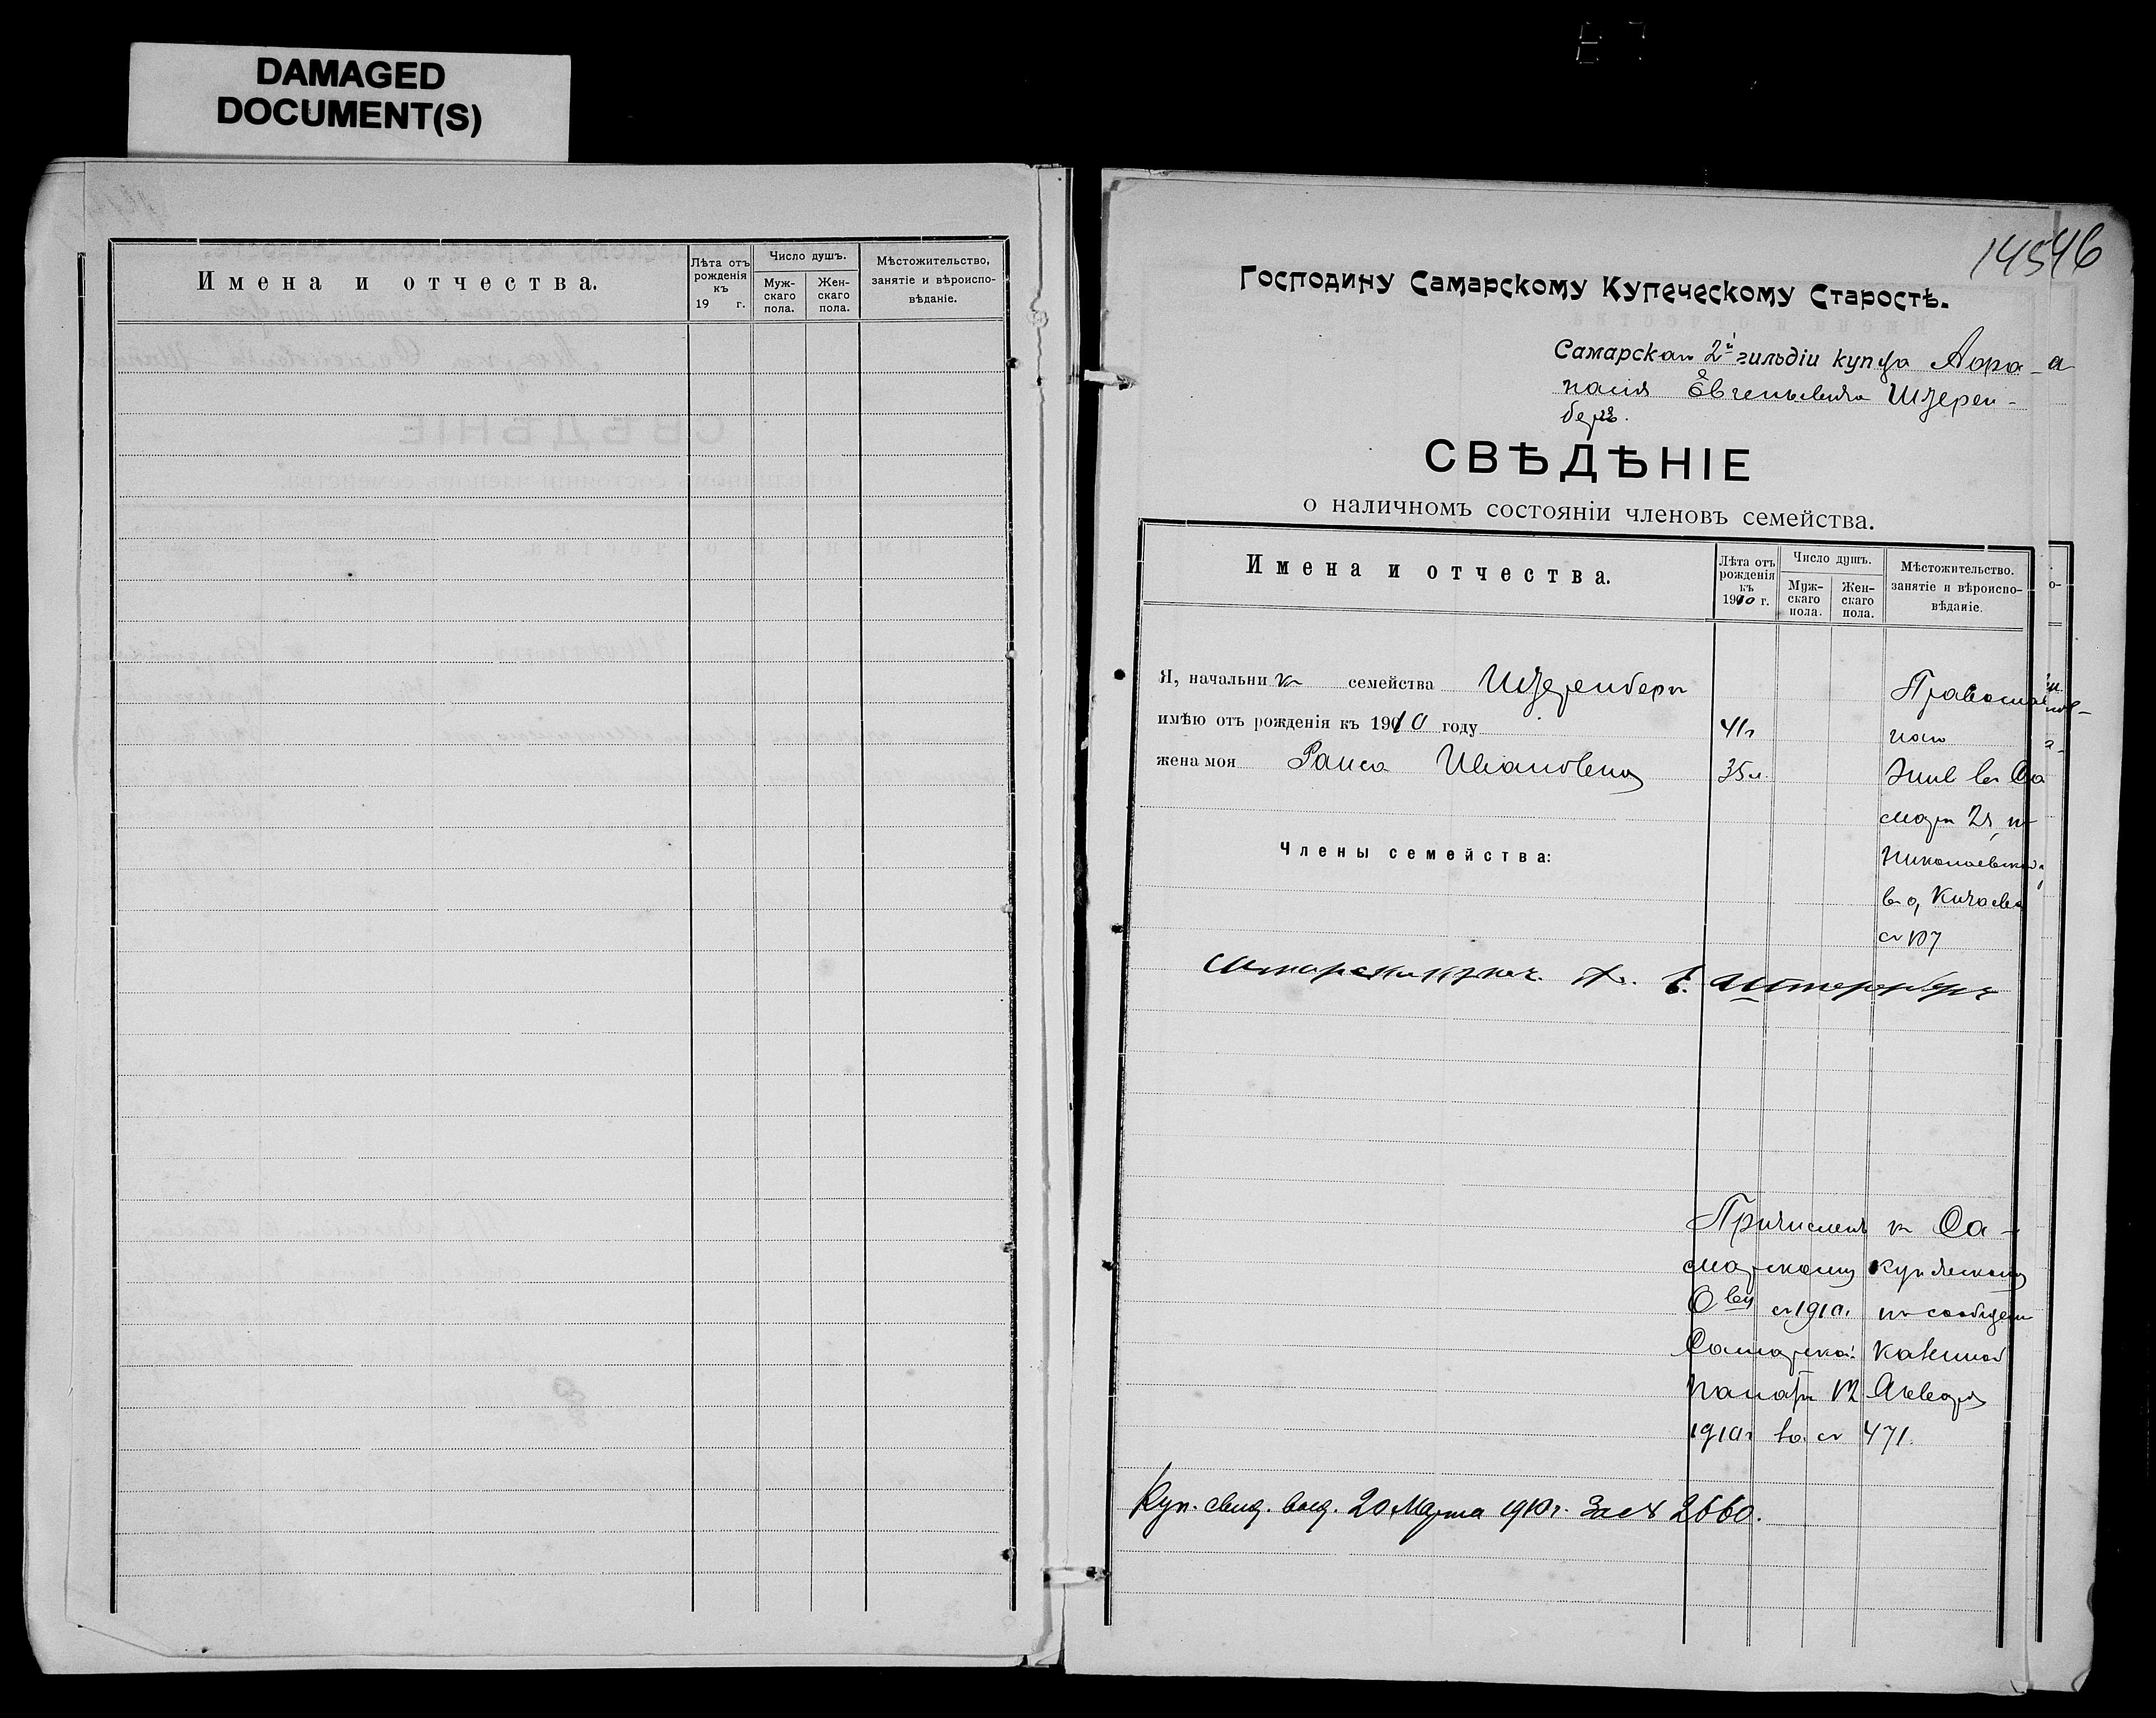 DAMAGED
DOCUMENT(S)
Имена и отчества.
Лѣта отъ рожденія къ 19 г.
Число душъ.
Муж-скаго пола.
Жен-скаго пола.
Мѣстожительство, занятіе и вѣроиспо-вѣданіе.
145 46
Господину Самарскому Купеческому Старостѣ.
Самарскаго 2й гильдіи купца
Евгеньевича Штерен-
берг.
СВѢДѢНІЕ
о наличномъ состояніи членовъ семейства.
Имена и отчества.
Лѣта отъ рожденія къ 1910 г.
Число душъ.
Муж-скаго пола.
Жен-скаго пола.
Мѣстожительство. занятіе и вѣроиспо-вѣданіе.
Я, начальникъ семейства Штеренбергъ
имѣю отъ рожденія къ 1910 году 41г
жена моя Раиса Ивановна 35л.
Православ-
наго
Жив. въ Са
марѣ
Николаевской
въ д,
№ 107
Члены семейства:
А. Е. Штеренбергъ
Причисленъ къ Са-
марскому купеческому
Ову съ 1910г. по сообщен
Самарской Казенной
Палаты 12 Января
1910г за № 471.
Куп. свид. выд. 20 Марта 1910г. За № 2660.